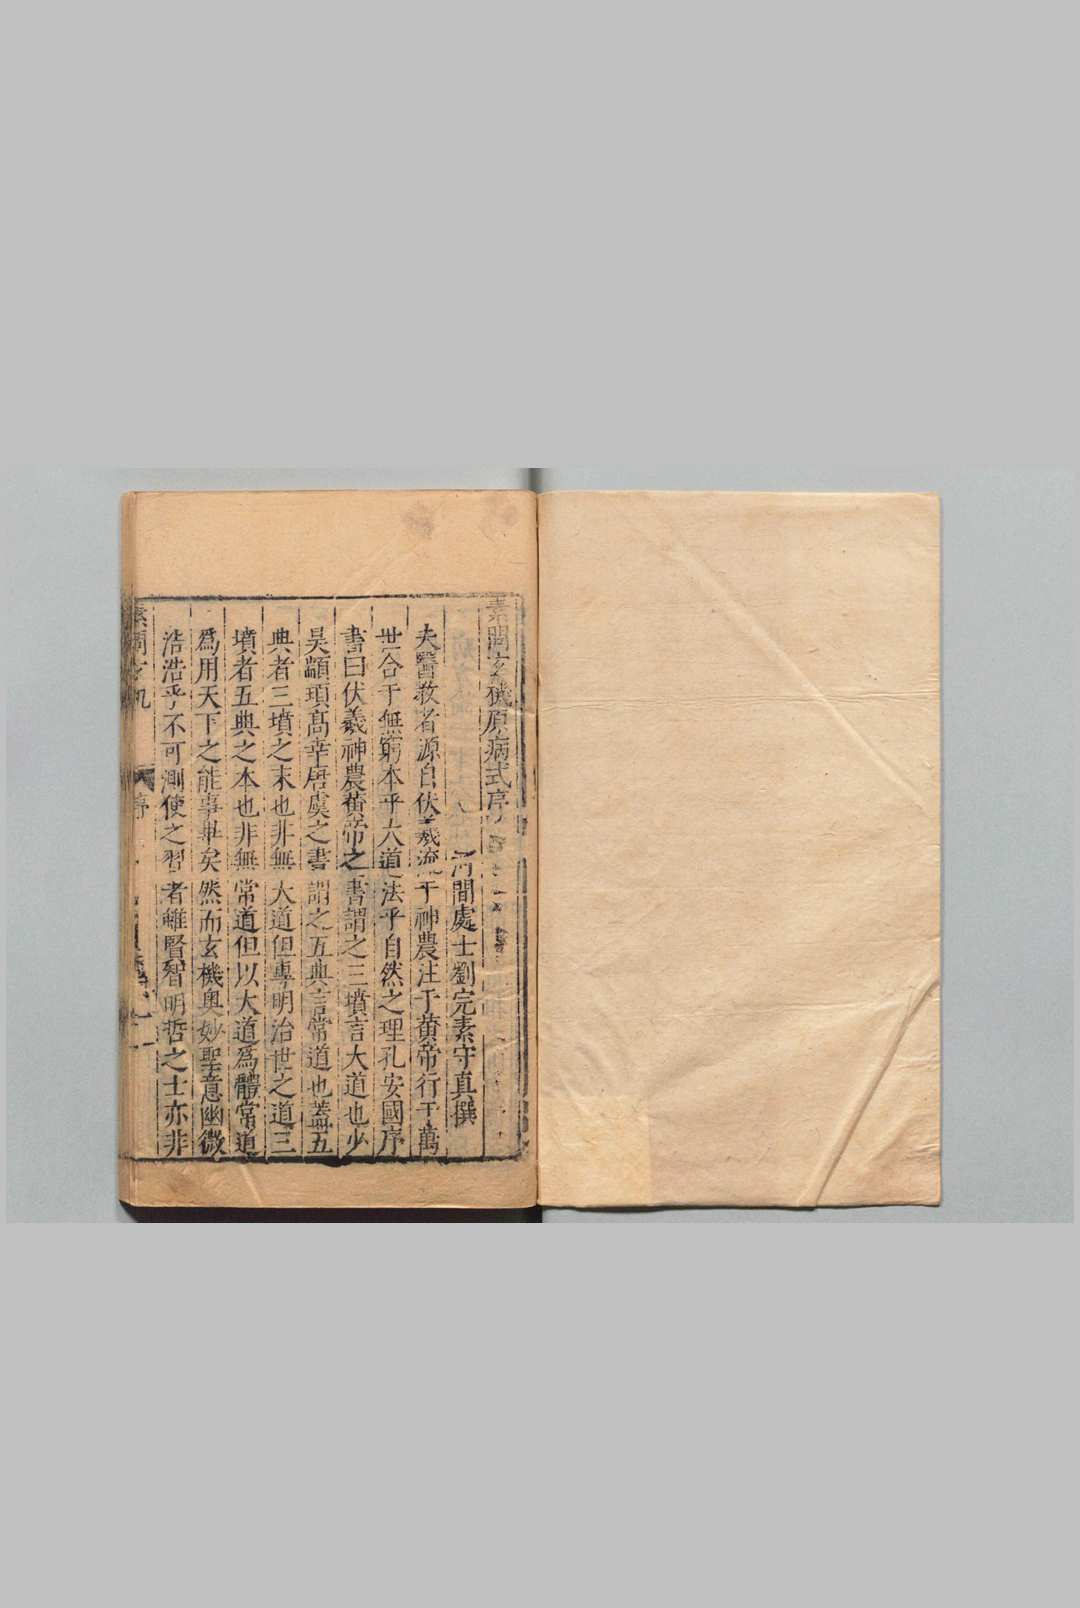 素問玄機原病式序
河間處士劉完素守真撰
夫醫教者源自伏羲流于神農注于黃帝行于萬
世合于無窮本乎大道法乎自然之理孔安國序
書曰伏羲神農黃帝之書謂之三墳言大道也少
昊顓頊高辛唐虞之書謂之五典言常道也蓋五
典者三墳之末也非無大道但專明治世之道三
墳者五典之本也非無常道但以大道爲體常道
爲用天下之能事畢矣然而玄機奧妙聖意幽微
浩浩乎不可測使之習者雖賢智明哲之士亦非
素問玄机
序